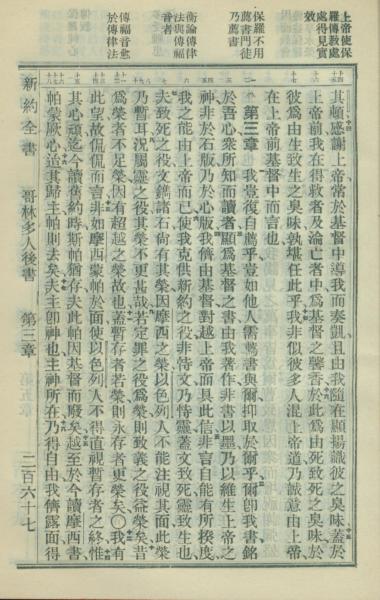 上帝使保
羅傳教處
處得見實
效
保羅不用
薦書門徒
乃薦書
衡論傳律
法與傳福
音者
傳福音愈
於傳律法
其頓感謝上帝常於基督中導我而奏凱且由我隨在顯揚識彼之臭味蓋於
上帝前我在得救者及淪亡者中爲基督之馨香於此爲由死致死之臭味於
彼爲由生致生之臭味孰堪任此乎我非似彼多人混上帝道乃誠意由上帝
在上帝前基督中而言也
第三章 我豈復自薦乎豈如他人需薦書與爾抑取於爾乎爾卽我書銘
於吾心衆所知而讀者顯爲基督之書由我著作非書以墨乃以維生上帝之
神非於石版乃於心版我儕由基督對越上帝而具此信非言自能有所揆度
我之能由上帝而已使我克供新約之役非恃文乃恃靈蓋文致死靈致生也
夫致死之役文鐫諸石尙有其榮因摩西之榮以色列人不能注視其面此榮
乃暫耳況屬靈之役其榮不更甚哉若定罪之役爲榮則致義之役益榮矣昔
爲榮者不足榮因有超越之榮故也蓋暫存者若榮則永存者更榮矣〇我有
此望故侃侃而言非如摩西蒙帕於面使以色列人不得直視暫存者之終惟
其心頑迄今讀舊約時斯帕猶存夫此帕因基督而廢矣越至於今讀摩西書
帕蒙厥心迨其歸主帕則去矣夫主卽神也主神所在乃得自由我儕露面得
新約全書 哥林多人後書 第三章 二百六十七